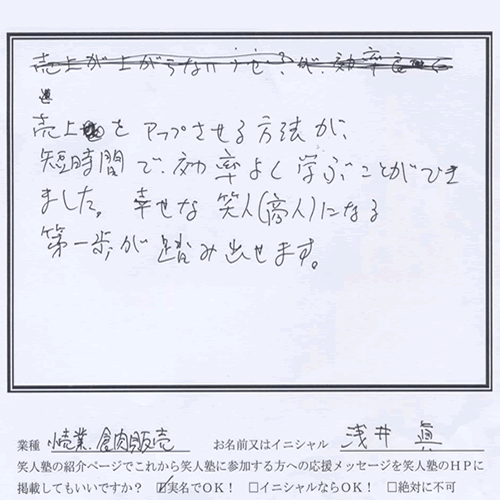 売上をアップさせる方法が、
短時間で、効率よく学ぶことができ
ました。幸せな笑人(商人)になる
第一歩が踏み出せます。
業種 小売業、食肉販売 お名前又はイニシャル 浅井 眞
笑人塾の紹介ページでこれから笑人塾に参加する方への応援メッセージを笑人塾のHPに
掲載してもいいですか? ☑実名でOK! □イニシャルならOK! □絶対に不可